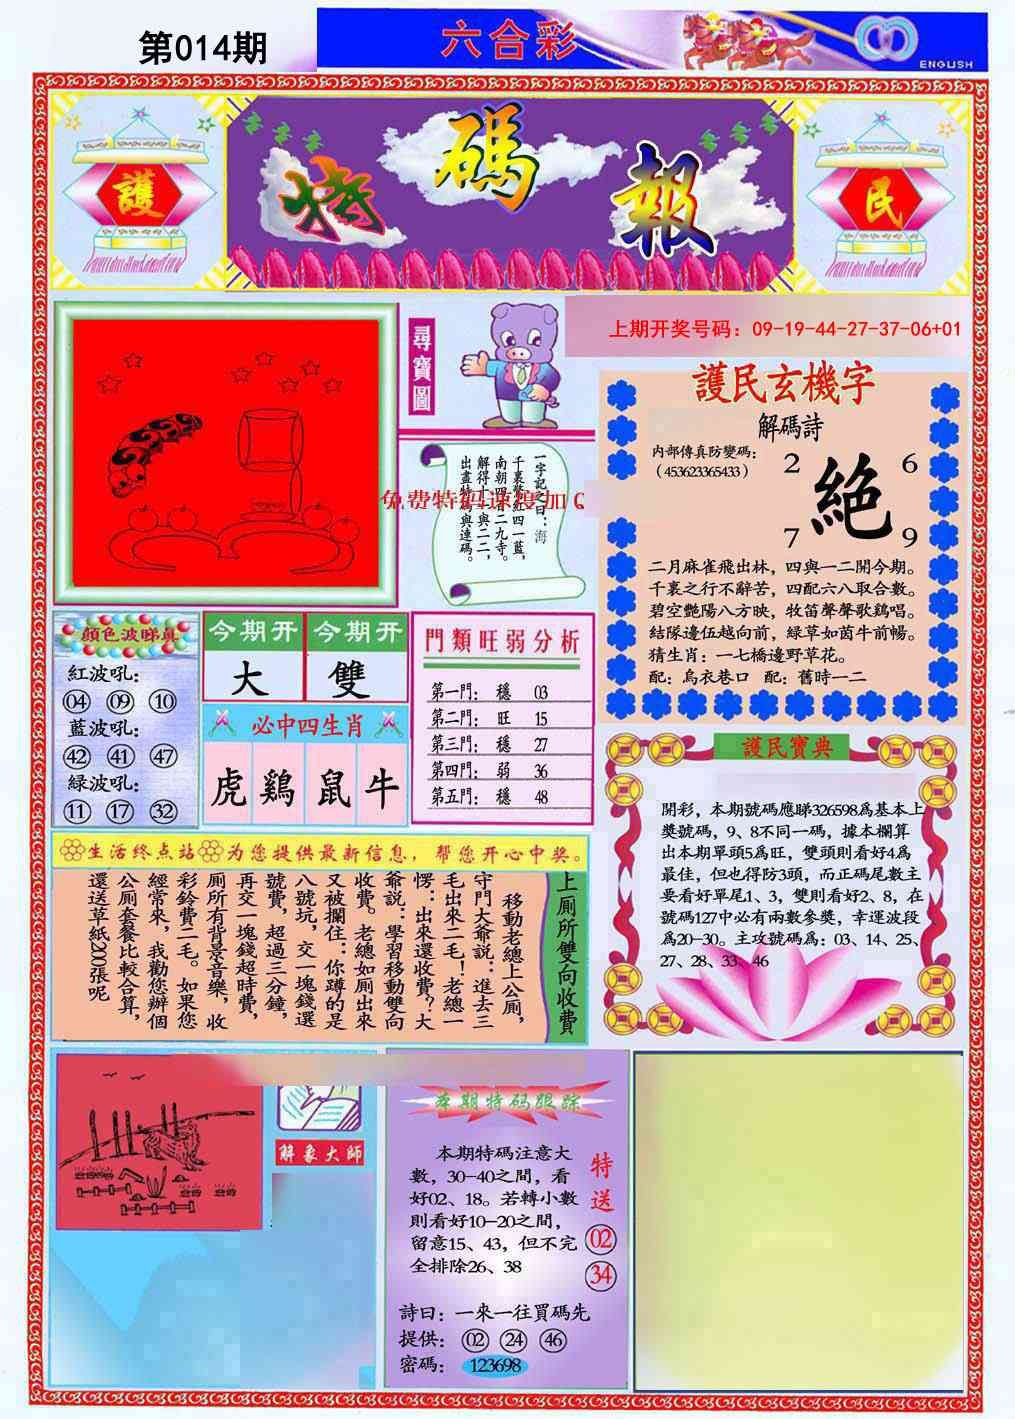 第014期
六合彩
ENGLISH
護
特碼報
民
尋寶圖
上期开奖号码：09-19-44-27-37-06+01
一字記之曰：海
千裏鶯
紅四一藍，
南朝四百
二九寺。
解得十
與二二，
出盡特
與連碼。
免费特码速度加Q
護民玄機字
解碼詩
内部傳真防變碼：
（453623365433）
2
6
絕
7
9
二月麻雀飛出林，四與一二開今期。
千裏之行不辭苦，四配六八取合數。
碧空艷陽八方映，牧笛聲聲歌鷄唱。
結隊邊伍越向前，緑草如茵牛前暢。
猜生肖：一七橋邊野草花。
配：烏衣巷口　配：舊時一二
顔色波睇真
紅波吼：
04 09 10
藍波吼：
42 41 47
緑波吼：
11 17 32
今期开
大
今期开
雙
必中四生肖
虎 鷄 鼠 牛
門類旺弱分析
第一門： 穩 03
第二門： 旺 15
第三門： 穩 27
第四門： 弱 36
第五門： 穩 48
護民寶典
開彩，本期號碼應睇326598爲基本上
獎號碼，9、8不同一碼，據本欄算
出本期單頭5爲旺，雙頭則看好4爲
最佳，但也得防3頭，而正碼尾數主
要看好單尾1、3，雙則看好2、8，在
號碼127中必有兩數參獎，幸運波段
爲20-30。主攻號碼爲：03、14、25、
27、28、33、46
生活终点站 为您提供最新信息，帮您开心中奖。
上厠所雙向收費
移動老總上公厠，
守門大爺説：進去三
毛出來二毛！老總一
愣：出來還收費？大
爺説：學習移動雙向
收費。老總如厠出來
又被攔住：你蹲的是
八號坑，交一塊錢選
號費，超過三分鐘，
再交一塊錢超時費，
厠所有背景音樂，收
彩鈴費二毛。如果您
經常來，我勸您辦個
公厠套餐比較合算，
還送草紙200張呢
解象大師
本期特码跟踪
本期特码注意大
數，30-40之間，看
好02、18。若轉小數
則看好10-20之間，
留意15、43，但不完
全排除26、38
特送
02
34
詩曰：一來一往買碼先
提供： 02 24 46
密碼： 123698